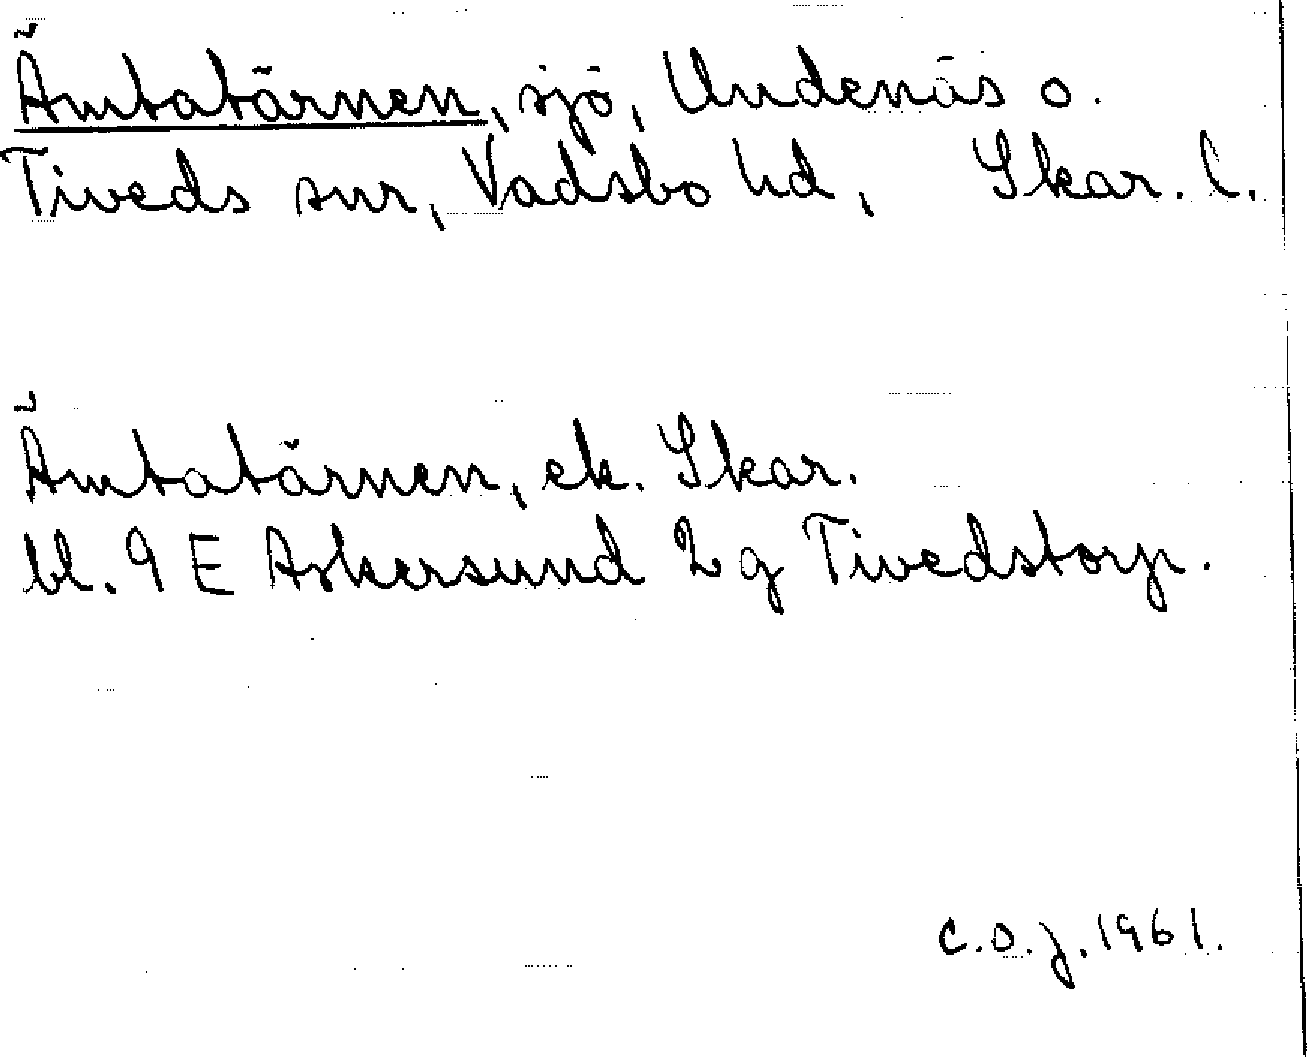 Ämtatärnen, sjö, Undenäs o.
Tiveds snr, Vadsbo hd, Skar. l.
Ämtatärnen, ek. Skar.
bl. 9 E Askersund 2 g Tivedstorp.
C.O.J. 1961.